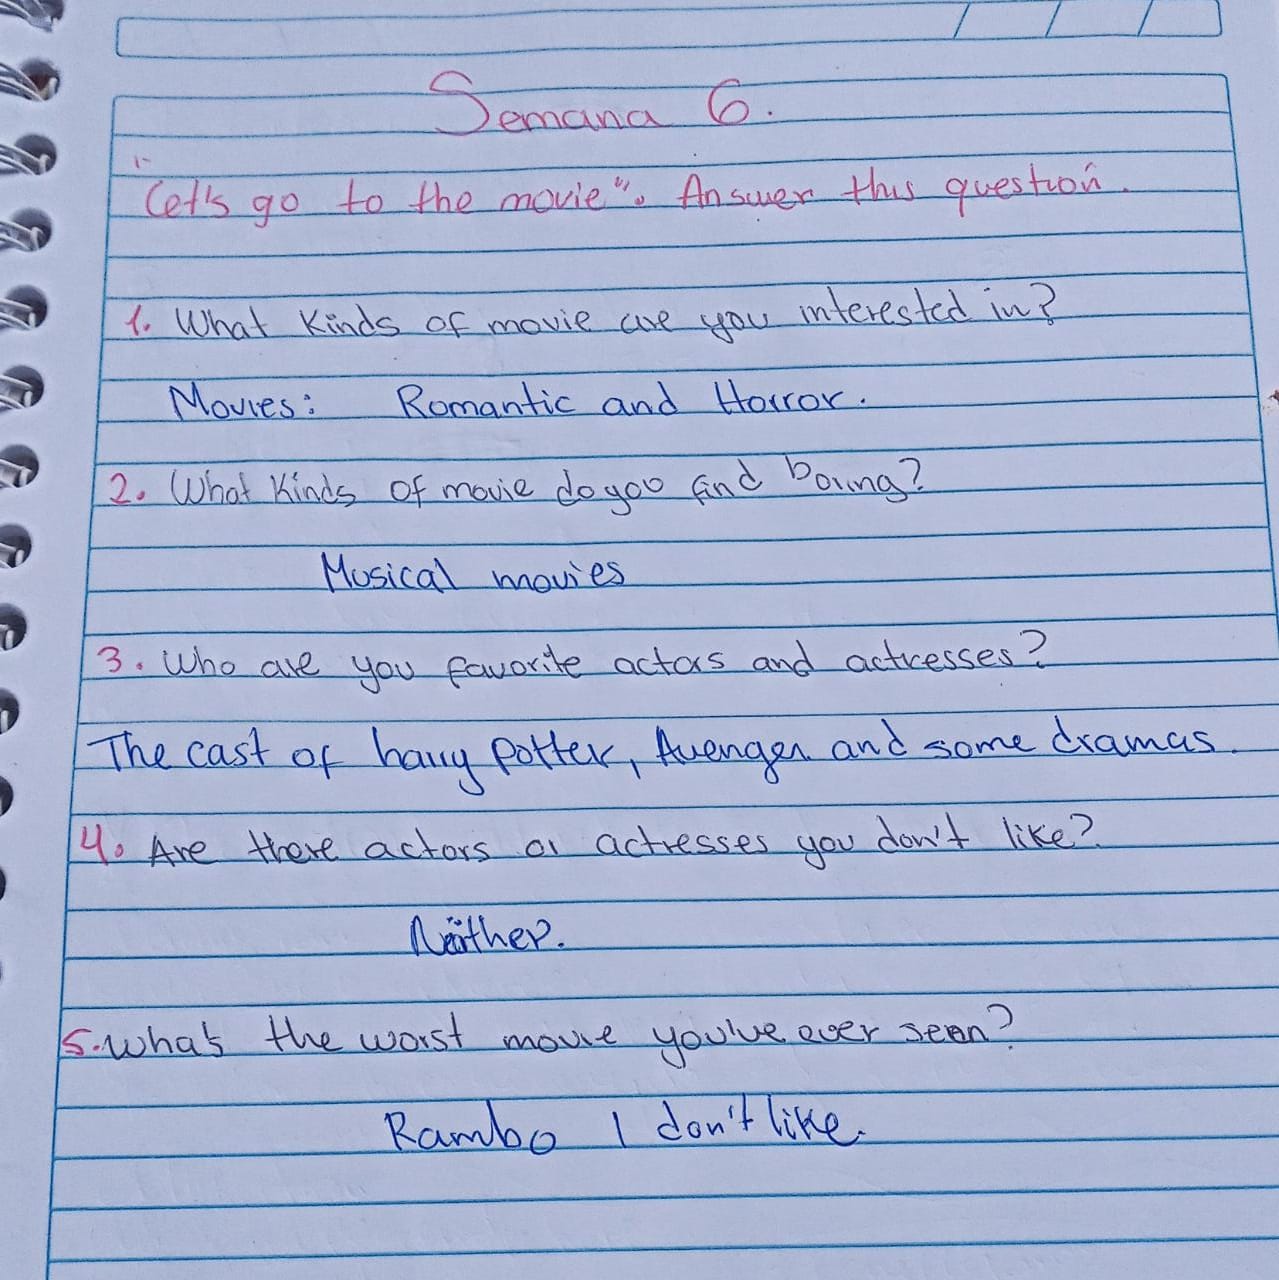 Semana 6.
1-
"Let's go to the movie". Answer this question.
1. What Kinds of movie are you interested in?
Movies: Romantic and Horror.
2. What Kinds of movie do you find boring?
Musical movies
3. Who are you favorite actors and actresses?
The cast of harry Potter, Avenger and some dramas.
4. Are there actors or actresses you don't like?
Neither.
5. what's the worst movie you've ever seen?
Rambo I don't like.